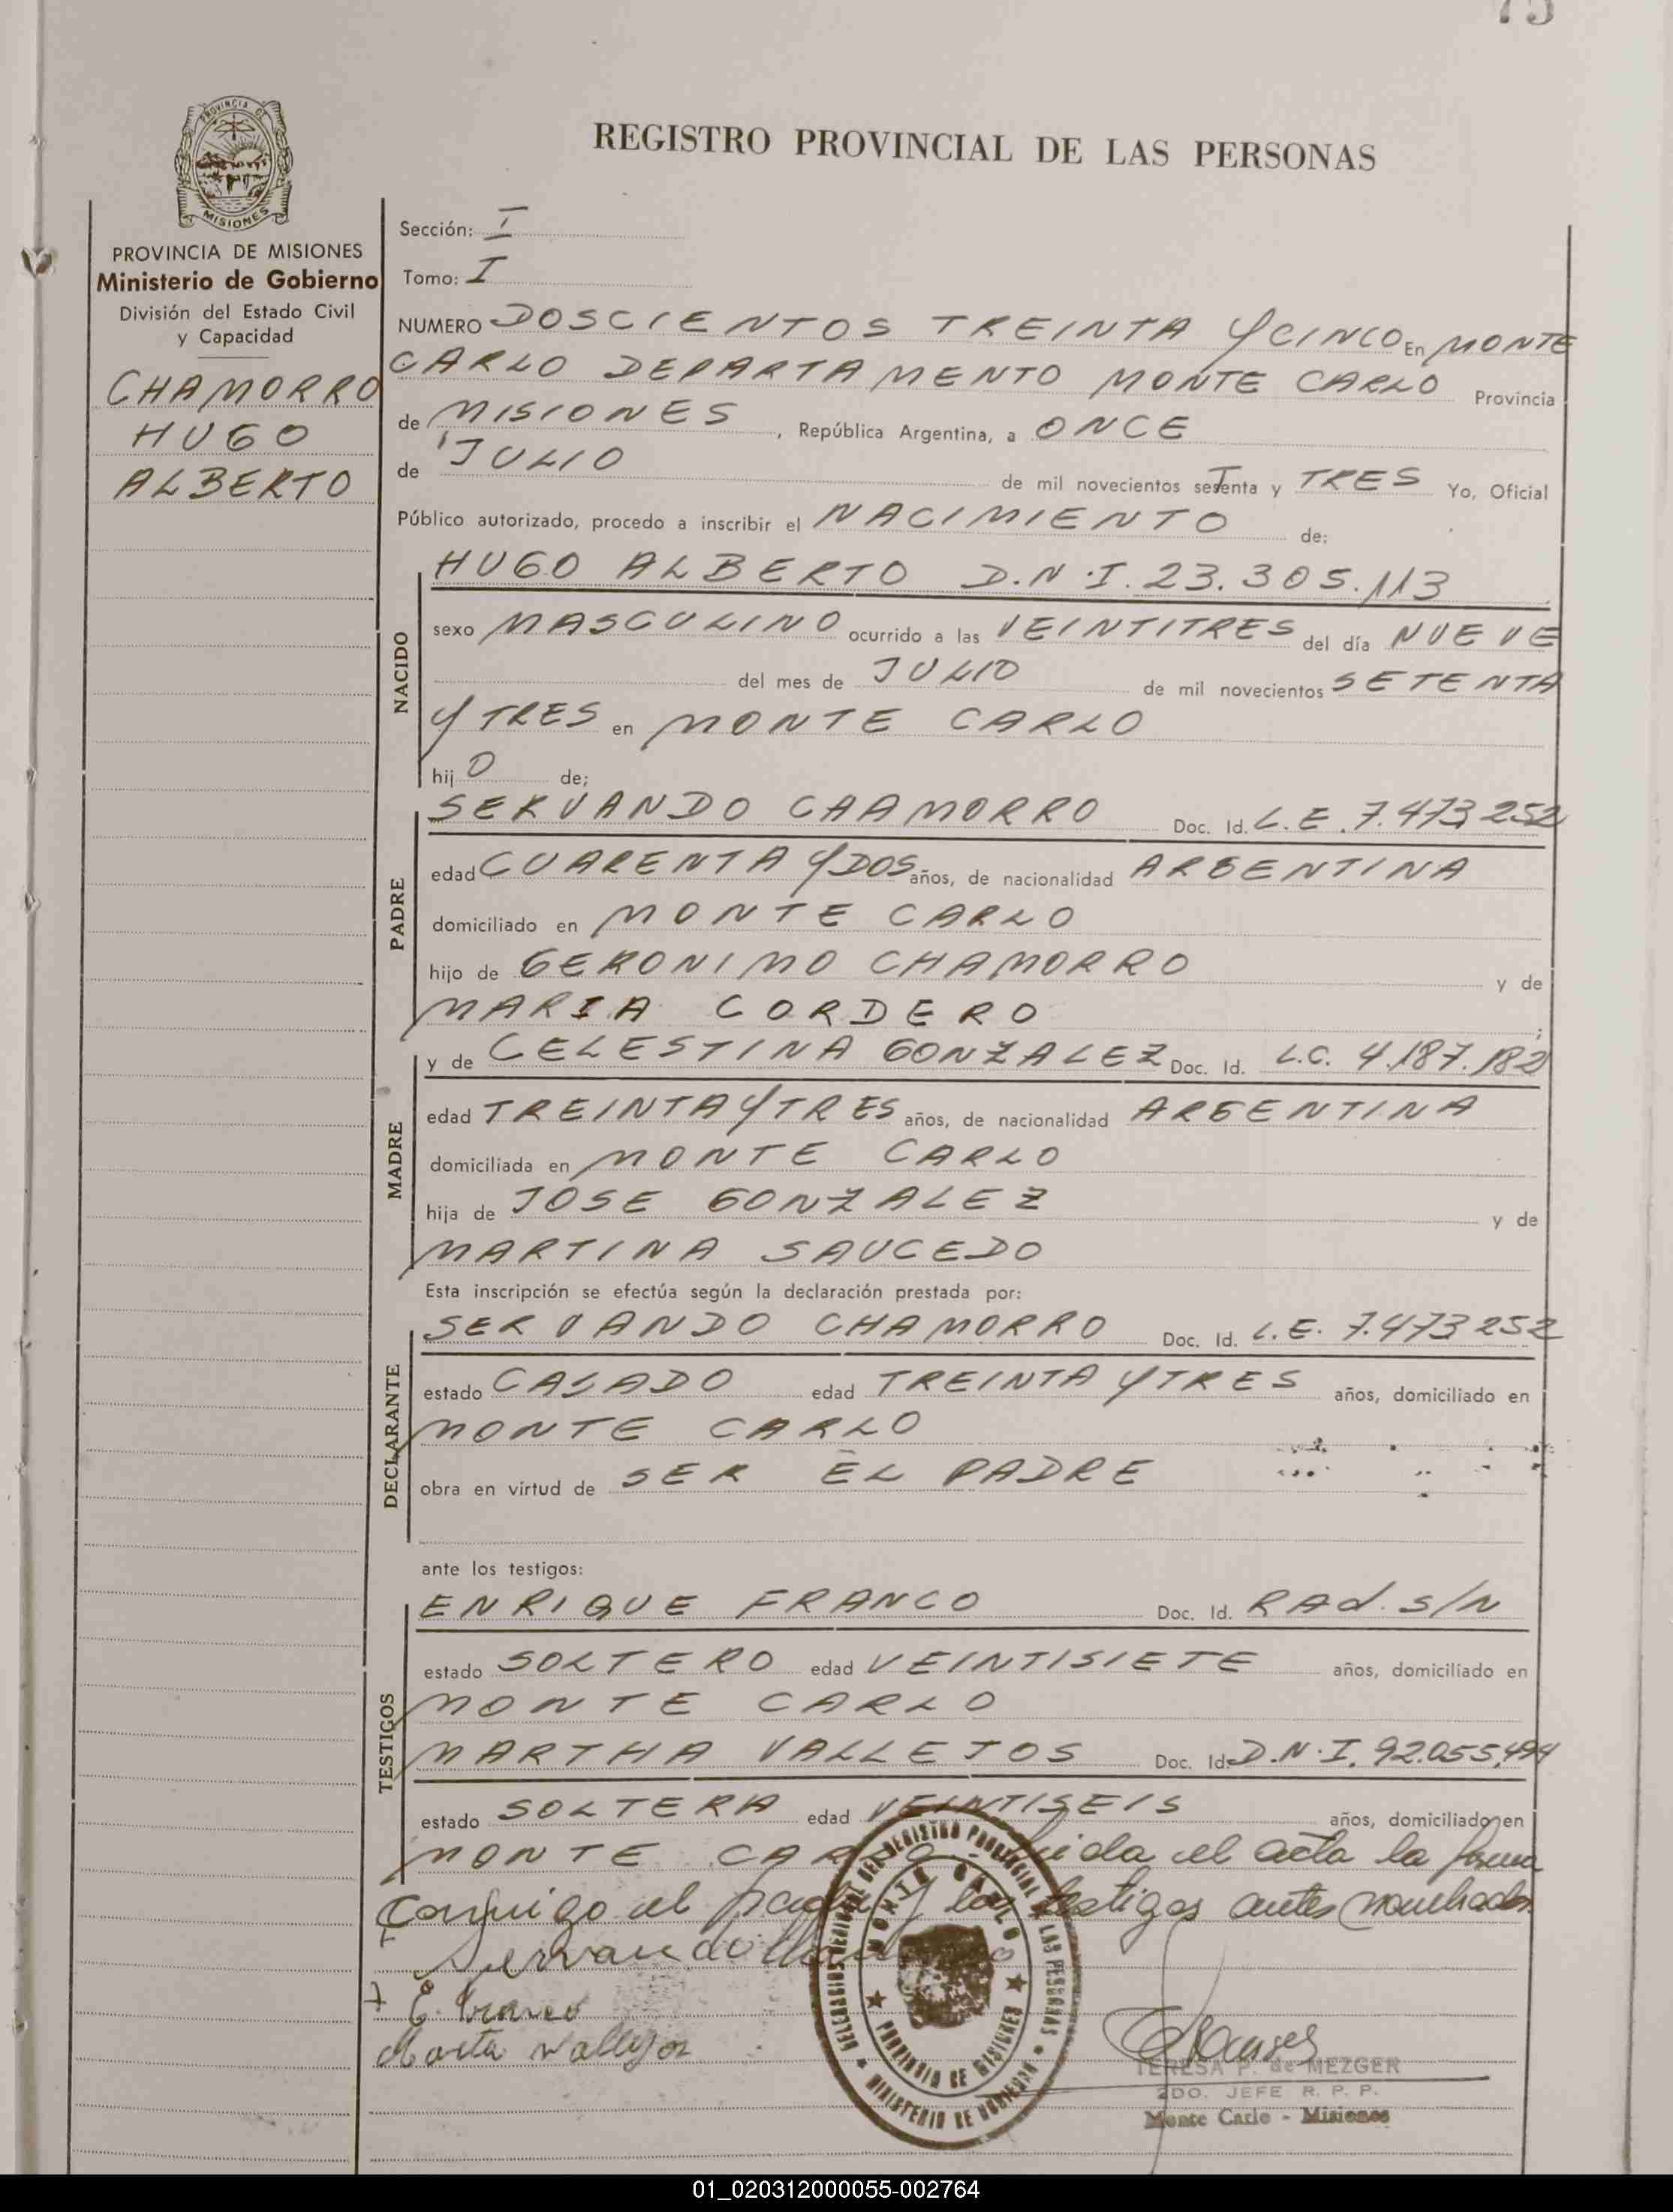 75
REGISTRO PROVINCIAL DE LAS PERSONAS
PROVINCIA DE
MISIONES
PROVINCIA DE MISIONES
Ministerio de Gobierno
División del Estado Civil
y Capacidad
CHAMORRO
HUGO
ALBERTO
Sección: I
Tomo: I
NUMERO DOSCIENTOS TREINTA Y CINCO En MONTE
CARLO DEPARTAMENTO MONTE CARLO Provincia
de MISIONES, República Argentina, a ONCE
de JULIO de mil novecientos setenta y TRES Yo, Oficial
Público autorizado, procedo a inscribir el NACIMIENTO de:
NACIDO
HUGO ALBERTO D.N.I. 23.305.113
sexo MASCULINO ocurrido a las VEINTITRES del día NUEVE
del mes de JULIO de mil novecientos SETENTA
Y TRES en MONTE CARLO
hij O de;
PADRE
SERVANDO CHAMORRO Doc. Id. L.E. 7.473252
edad CUARENTA Y DOS años, de nacionalidad ARGENTINA
domiciliado en MONTE CARLO
hijo de GERONIMO CHAMORRO y de
MARIA CORDERO ;
MADRE
y de CELESTINA GONZALEZ Doc. Id. L.C. 4.187.182
edad TREINTA Y TRES años, de nacionalidad ARGENTINA
domiciliada en MONTE CARLO
hija de JOSE GONZALEZ y de
MARTINA SAUCEDO
Esta inscripción se efectúa según la declaración prestada por:
DECLARANTE
SERVANDO CHAMORRO Doc. Id. L.E. 7.473252
estado CASADO edad TREINTA Y TRES años, domiciliado en
MONTE CARLO
obra en virtud de SER EL PADRE
ante los testigos:
TESTIGOS
ENRIQUE FRANCO Doc. Id. RAd. s/N
estado SOLTERO edad VEINTISIETE años, domiciliado en
MONTE CARLO
MARTHA VALLEJOS Doc. Id. D.N.I. 92.055.494
estado SOLTERA edad VEINTISEIS años, domiciliado en
MONTE CARLO - leida el acta la firma
conmigo el padre y los testigos antes nombrados
Servando
E. Franco
Marta Vallejos
DELEGACION DEL REGISTRO PROVINCIAL DE LAS PERSONAS
MONTE CARLO
PROVINCIA DE MISIONES
MINISTERIO DE GOBIERNO
TERESA P. de MEZGER
2DO. JEFE R. P. P.
Monte Carlo - Misiones
01_020312000055-002764